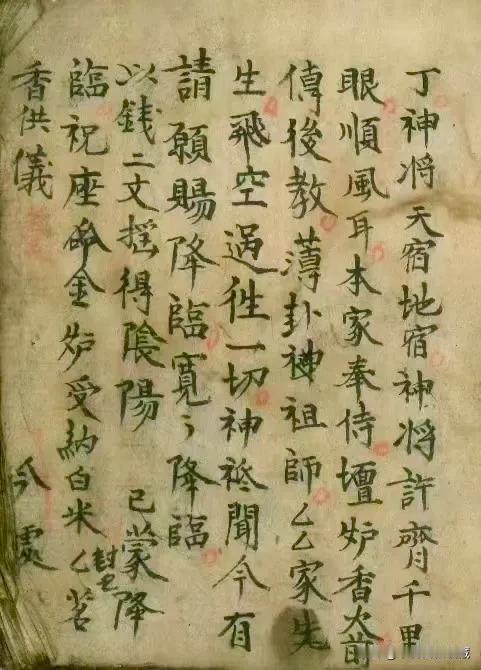 丁神将天宿地宿神将許齊千里
眼順風耳本家奉侍壇炉香火前
傳後教薄卦神祖師厶厶家先
生飛空過徃一切神祗聞今有
請願賜降臨寬々降臨
以錢二文摇得陰陽 已蒙降
臨祝座金炉受納白米厶封茗
香供儀 處